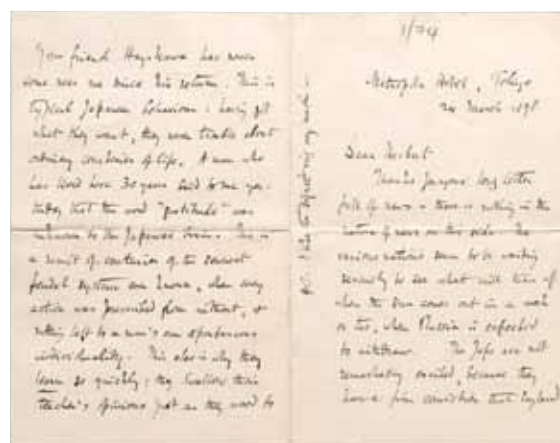 Your friend has never
come near me since his return. This is
typical Japanese behaviour: having got
what they want, they never trouble about
ordinary courtesies of life. A man who
has lived here 30 years said to me yes-
terday that the word "gratitude" was
unknown to the Japanese brain. This is
a result of centuries of the severest
feudal system ever known, when every
action was prescribed from without, &
nothing left to a man's own spontaneous
individuality. This also is why they
learn so quickly: they swallow their
teacher's opinions just as they used to
I hate to my
Metropole Hotel, Tokyo
24 March 1898
Dear Herbert
Thanks for your long letter
full of news - there is nothing in the
nature of news on this side. The
various nations seem to be waiting
to see what will turn up
when the comes out in a week
or two, when Russia is expected
to withdraw. The Japs are not
remarkably excited, because they
have a firm conviction that England